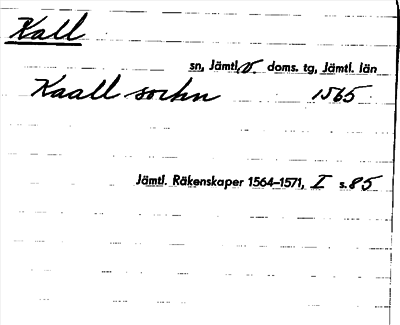 Kall
sn, Jämtl. v. doms. tg, Jämtl. län
Kaall sockn 1565
Jämtl. Räkenskaper 1564–1571, I s. 85